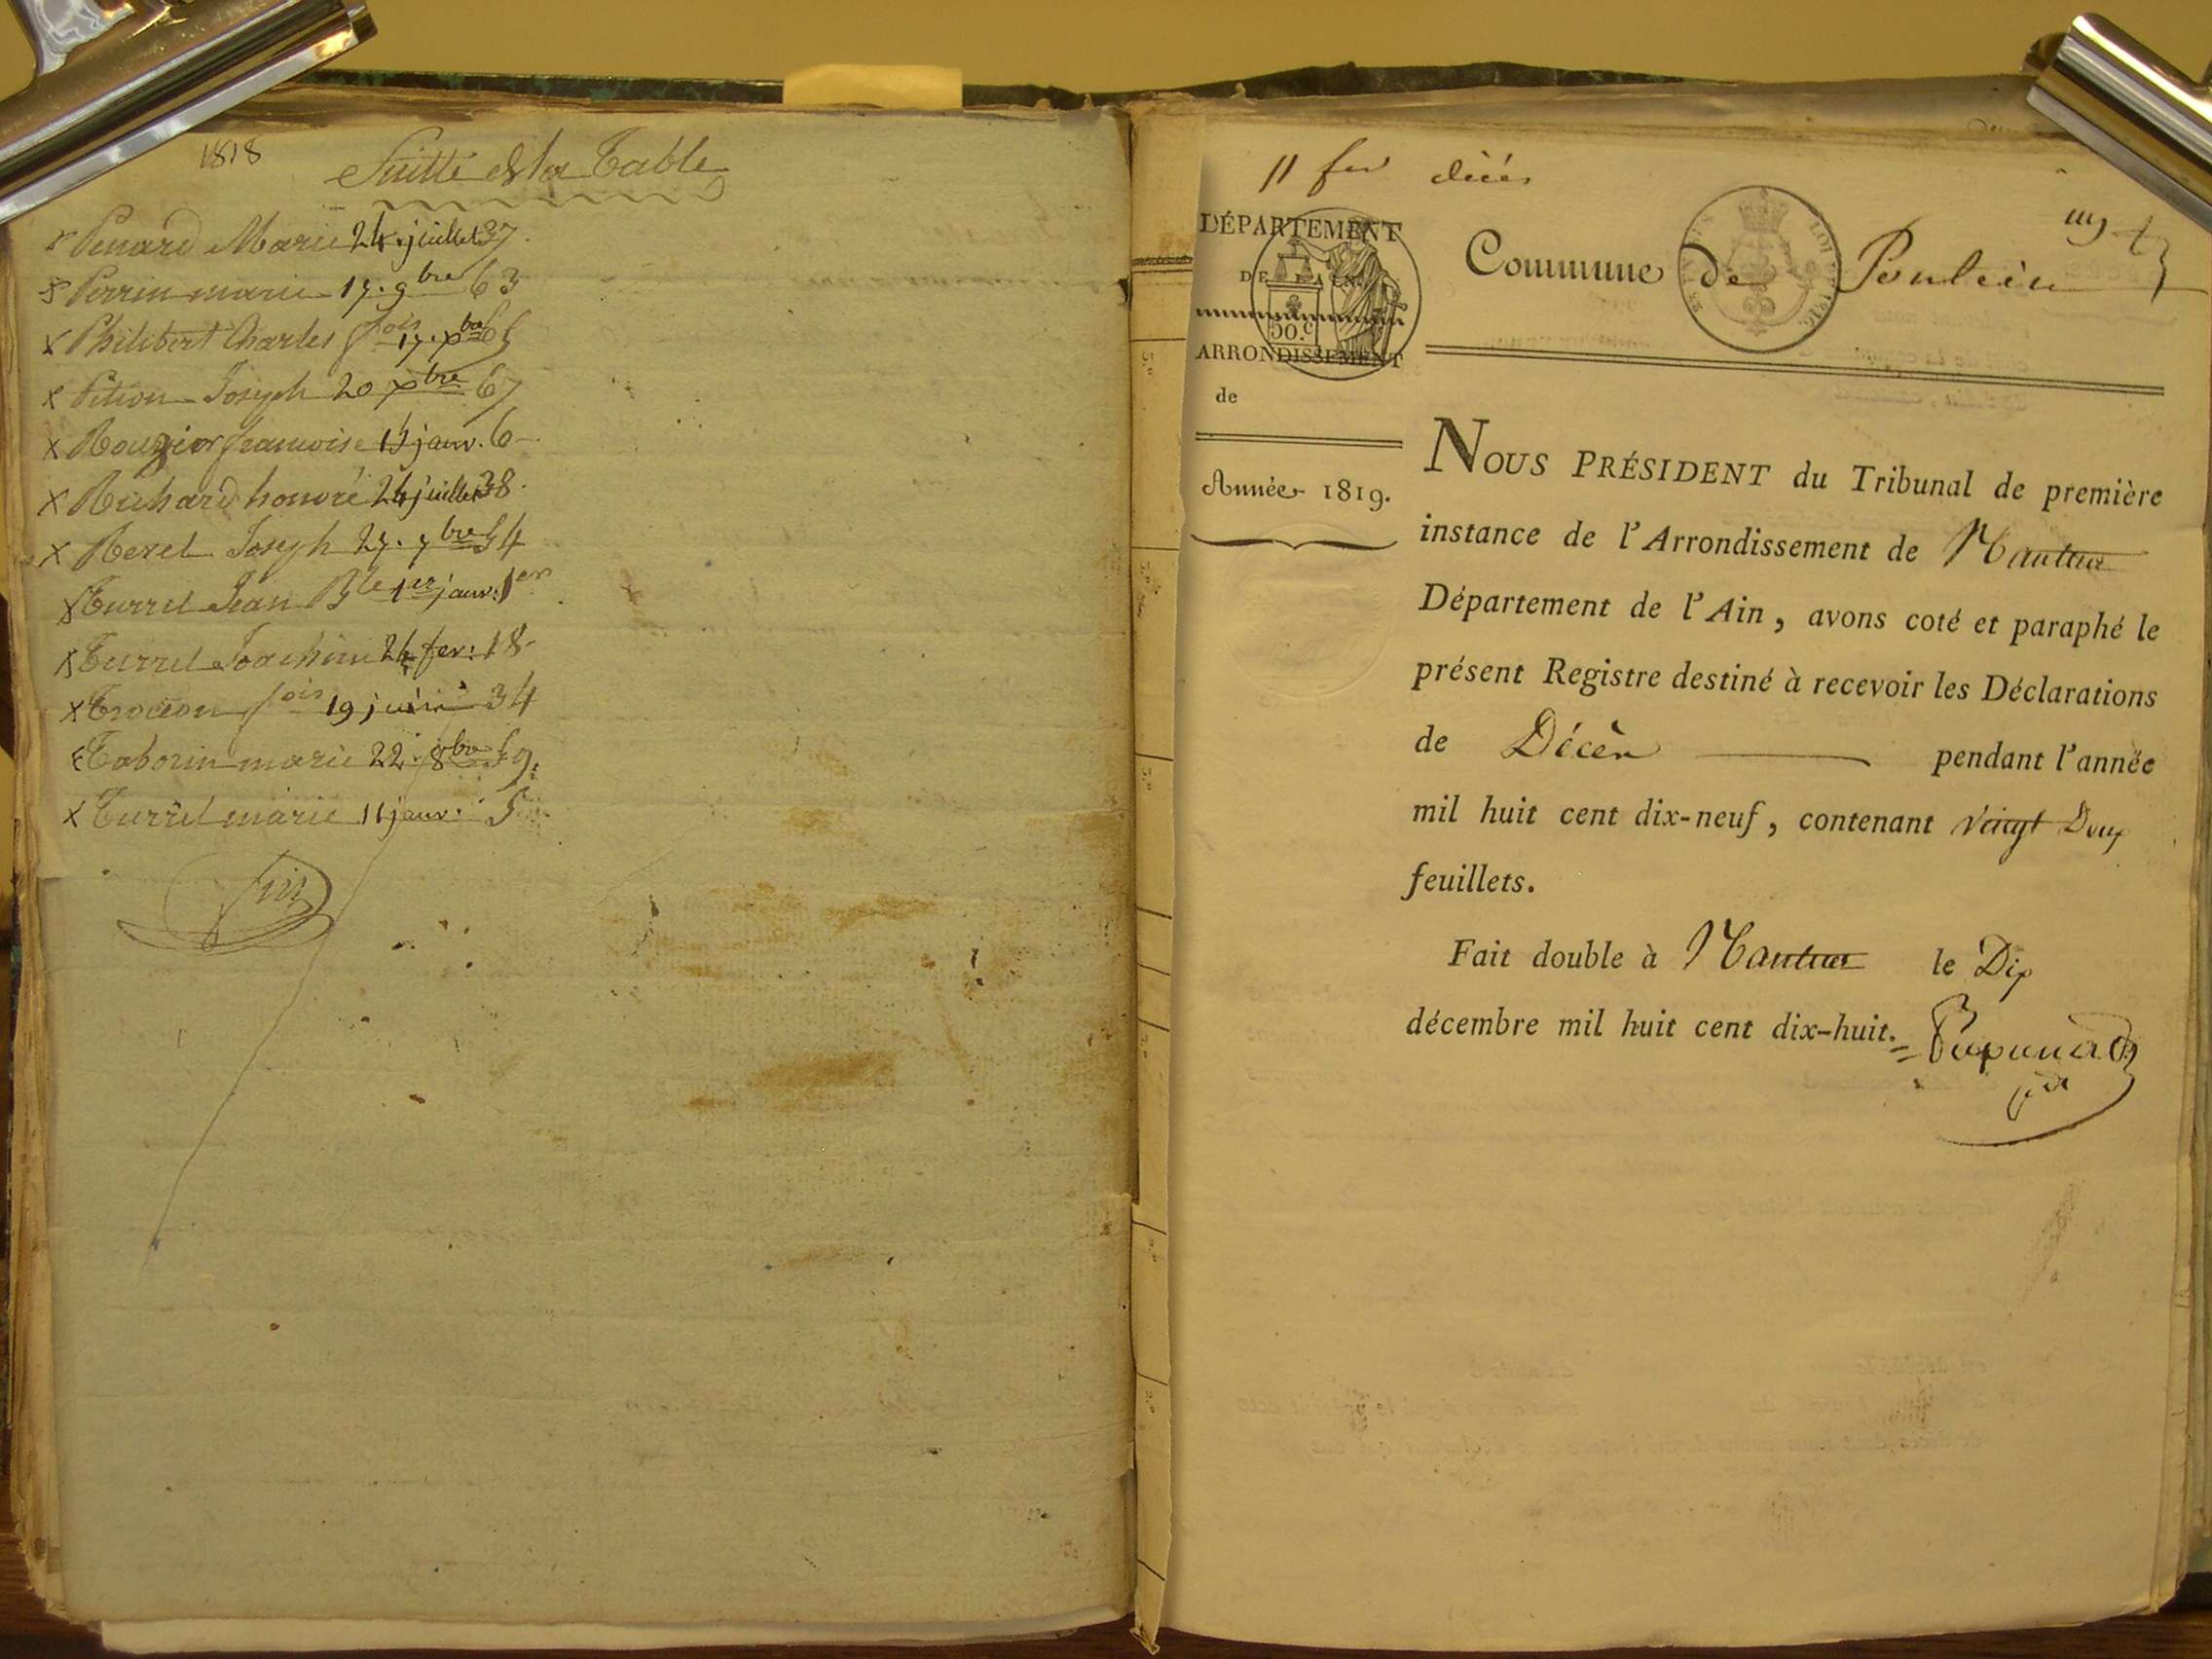 1818
Suitte de la Table
x Penard Marie 24 juillet 37.
x Perrin marie 17. 9bre 63
x Philibert Charles fois 17. xbre 65
x Pition Joseph 20 xbre 67
x Rouzier francoise 15 janv. 6
x Richard honoré 24 juillet 38.
x Revel Joseph 27. 7bre 54
x Turrel Jean Bte 1er janv: 1er
x Turrel Joachim 24 fev: 18
x Trocon fois 19 juin 34
x Taborin marie 22. 8bre 59.
x Turrel marie 11 janv. 5
fin
11 fer décès
DÉPARTEMENT
DE L'AIN.
50.c
ARRONDISSEMENT
de
Année 1819.
Commune de Poncin
NOUS PRÉSIDENT du Tribunal de première
instance de l'Arrondissement de Nantua
Département de l'Ain, avons coté et paraphé le
présent Registre destiné à recevoir les Déclarations
de Décès pendant l'année
mil huit cent dix-neuf, contenant vingt Deux
feuillets.
Fait double à Nantua le Dix
décembre mil huit cent dix-huit.